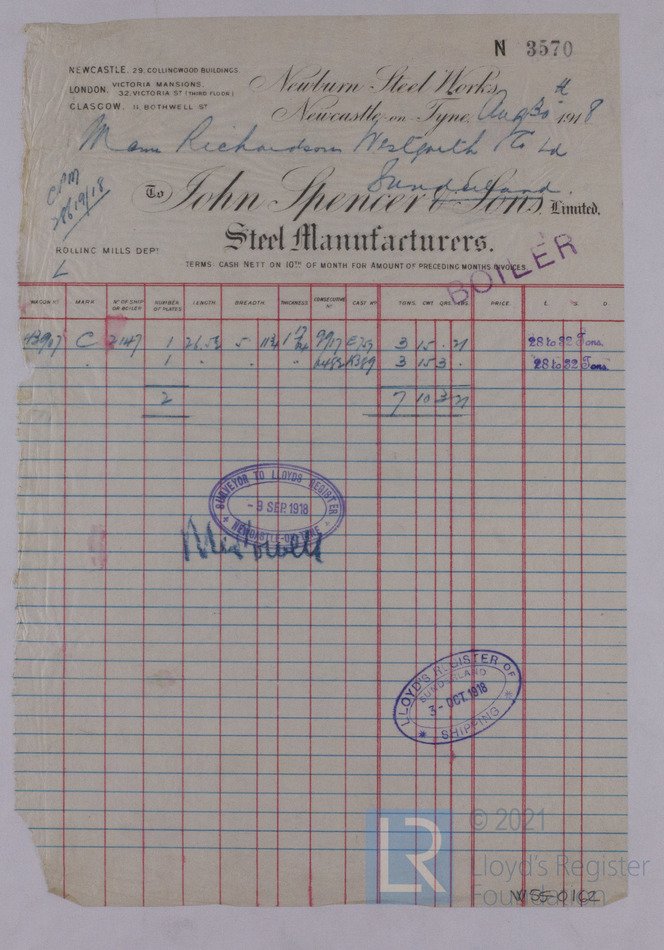 N 3570
NEWCASTLE. 29, COLLINGWOOD BUILDINGS.
LONDON. VICTORIA MANSIONS, 32, VICTORIA ST (THIRD FLOOR)
GLASGOW. 11, BOTHWELL ST
Newburn Steel Works,
Newcastle-on-Tyne, Aug 30th 1918
Richardsons Westgarth & Co Ld
Sunderland.
To John Spencer & Sons, Limited.
Steel Manufacturers.
ROLLING MILLS DEPT
TERMS: CASH NETT ON 10TH OF MONTH FOR AMOUNT OF PRECEDING MONTHS INVOICES.
BOILER
WAGON NO. MARK NO OF SHIP OR BOILER NUMBER OF PLATES LENGTH. BREADTH. THICKNESS. CONSECUTIVE NO CAST NO TONS. CWT. QRS. LBS. PRICE. £. S. D.
C 2147 1 5 3 15 . 21 28 to 32 Tons.
" " 1 " " " 3 15 3 . 28 to 32 Tons.
2 7 10 3 21
SURVEYOR TO LLOYDS REGISTER
- 3 SEP. 1918
NEWCASTLE-ON-TYNE
LLOYD'S REGISTER OF
SUNDERLAND
3 - OCT. 1918
SHIPPING
LR
© 2021
Lloyd's Register
Foundation
W55-0162